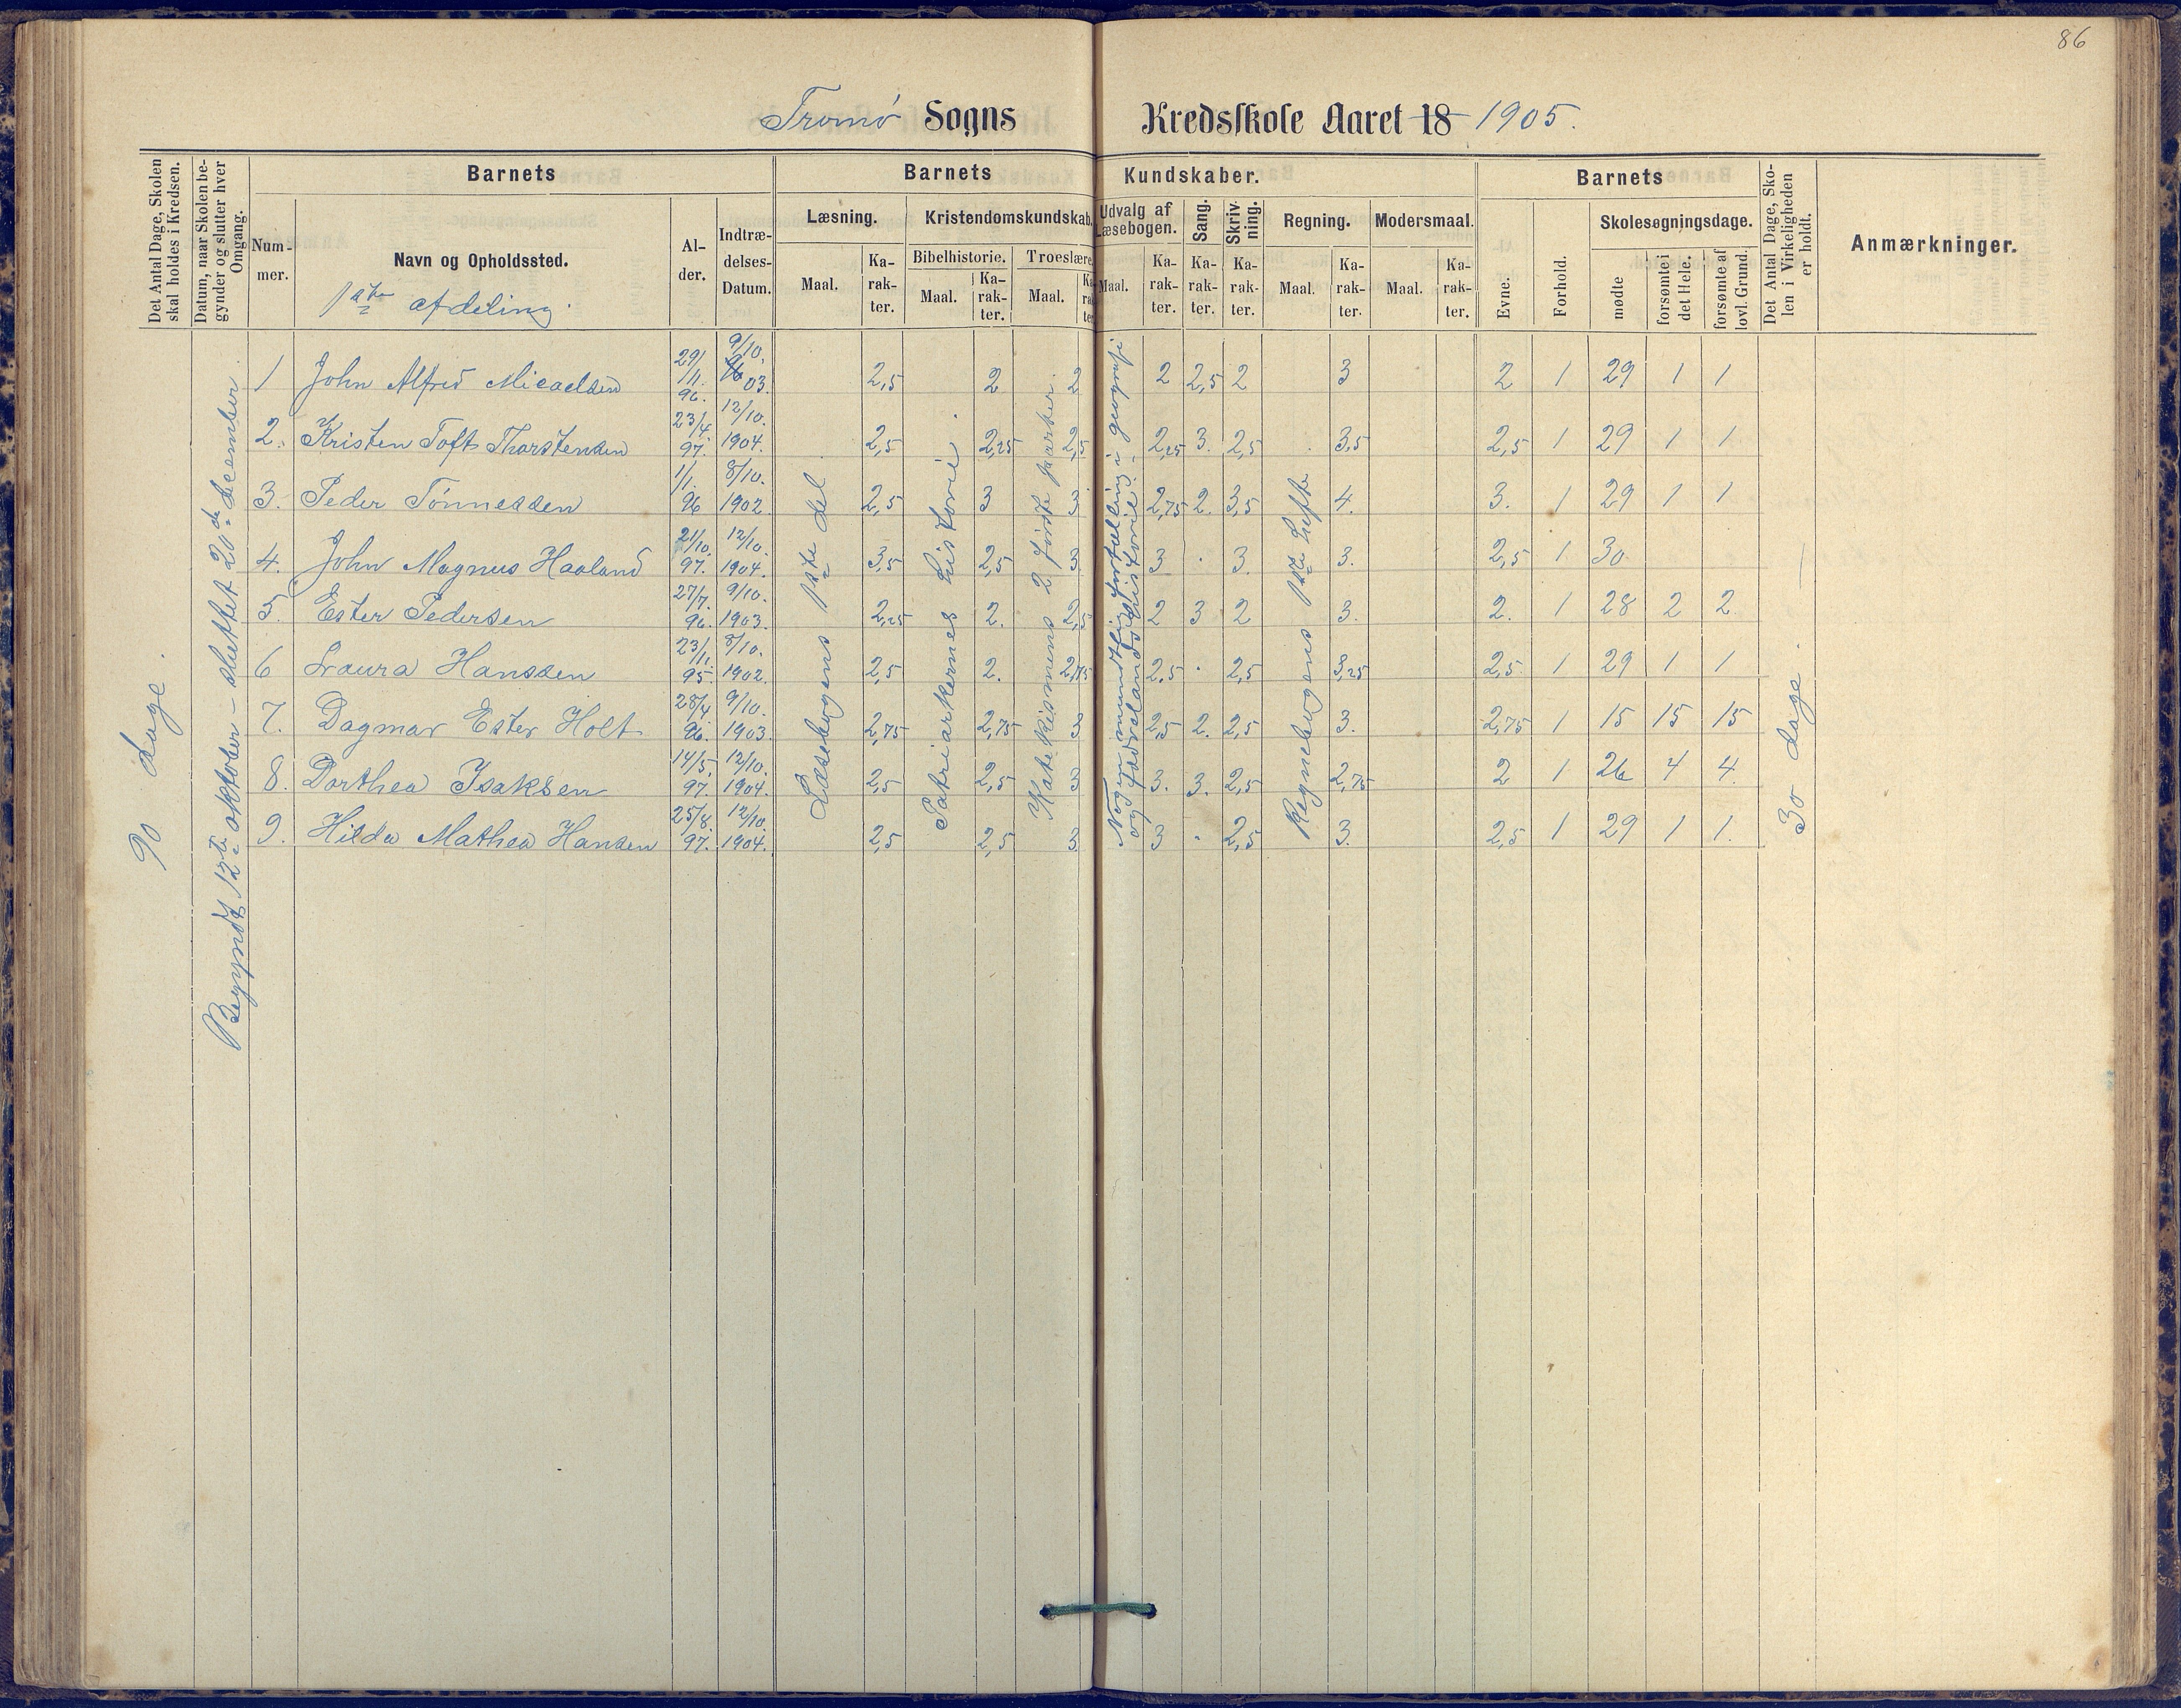 86
Tromø Sogns Kredsskole Aaret 18 1905.
Det Antal Dage, Skolen skal holdes i Kredsen.
Datum, naar Skolen begynder og slutter hver Omgang.
Barnets
Nummer.
Navn og Opholdssted.
1ste afdeling.
Alder.
Indtrædelses-Datum.
Barnets Kundskaber.
Læsning. Maal. Karakter.
Kristendomskundskab.
Bibelhistorie. Maal. Karakter.
Troeslære. Maal. Karakter.
Udvalg af Læsebogen. Maal. Karakter.
Sang. Karakter.
Skrivning. Karakter.
Regning. Maal. Karakter.
Modersmaal. Maal. Karakter.
Barnets
Evne.
Forhold.
Skolesøgningsdage.
mødte
forsømte i det Hele.
forsømte af lovl. Grund.
Det Antal Dage, Skolen i Virkeligheden er holdt.
Anmærkninger.
90 dage.
Begyndt 12te oktober - sluttet 20de december
Læsebogens 1ste del
Patriarkernes historie.
Katekismens 2 første parter.
Nogen mundtlig fortælling i geografi
og fædrelandshistorie.
Regnebogens 1ste hefte
30 dage.
1 John Alfred Micaelsen 29/11. 96. 9/10. 03. 2,5 2 2 2 2,5 2 3 2 1 29 1 1
2. Kristen Toft Thorstensen 23/4. 97. 12/10. 1904. 2,5 2,25 2,5 2,25 3. 2,5 3,5 2,5 1 29 1 1
3. Peder Tønnessen 1/1. 96 8/10. 1902. 2,5 3 3 2,75 2. 3,5 4. 3. 1 29 1 1
4. John Magnus Haaland 21/10. 97. 12/10. 1904. 3,5 2,5 3 3 . 3. 3. 2,5 1 30
5. Ester Pedersen 27/7. 96. 9/10. 1903. 2,25 2. 2,5 2 3 2 3. 2. 1 28 2 2.
6 Laura Hanssen 23/11. 95. 8/10. 1902. 2,5 2. 2,75 2,5 . 2,5 3,25 2,5 1 29 1 1
7. Dagmar Ester Holt 28/4. 96. 9/10. 1903. 2,75 2,75 3 2,5 2. 2,5 3. 2,75 1 15 15 15
8. Dorthea Isaksen 14/5. 97. 12/10. 1904. 2,5 2,5 3 3. 3. 2,5 2,75 2 1 26 4 4.
9. Hilda Mathea Hansen 25/8. 97. 12/10. 1904. 2,5 2,5 3 3 . 2,5 3. 2,5 1 29 1 1.